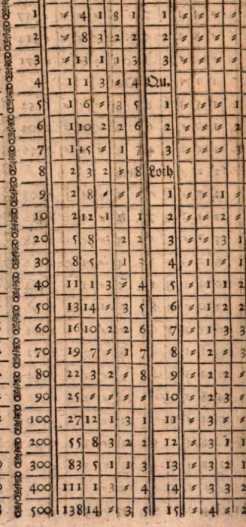 1 ⸗ 4 1 8 1 1 ⸗ ⸗ ⸗ ⸗
2 ⸗ 8 3 2 2 2 ⸗ ⸗ ⸗ ⸗
3 ⸗ 13 1 1 3 3 ⸗ ⸗ ⸗
4 1 1 3 ⸗ 4 Qu.
5 1 6 ⸗ 5 1 ⸗ ⸗ ⸗ 1
6 1 10 2 2 6 2 ⸗ ⸗ ⸗
7 1 15 ⸗ 1 7 3 ⸗ ⸗ ⸗ 1
8 2 3 2 ⸗ 8 Loth
9 2 8 ⸗ ⸗ 1 ⸗ ⸗ 1 ⸗
10 2 12 1 1 2 ⸗ ⸗ 2 ⸗
20 5 8 2 2 3 ⸗ ⸗ 3
30 8 5 1 3 4 ⸗ 1 ⸗ 1
40 11 1 3 ⸗ 4 5 ⸗ 1 1 2
50 13 14 ⸗ 3 5 6 ⸗ 1 2 2
60 16 10 2 2 6 7 ⸗ 1 3 3
70 19 7 ⸗ 1 7 8 ⸗ 2 ⸗
80 22 3 2 ⸗ 8 9 ⸗ 2 2 ⸗
90 25 ⸗ ⸗ ⸗ ⸗ 10 ⸗ 2 3
100 27 12 1 3 1 11 ⸗ 3 ⸗
200 55 8 3 2 2 12 ⸗ 3 1 1
300 83 5 1 1 3 13 ⸗ 3 2
400 111 1 3 ⸗ 4 14 ⸗ 3 3 2
500 138 14 ⸗ 3 5 15 ⸗ 4 ⸗